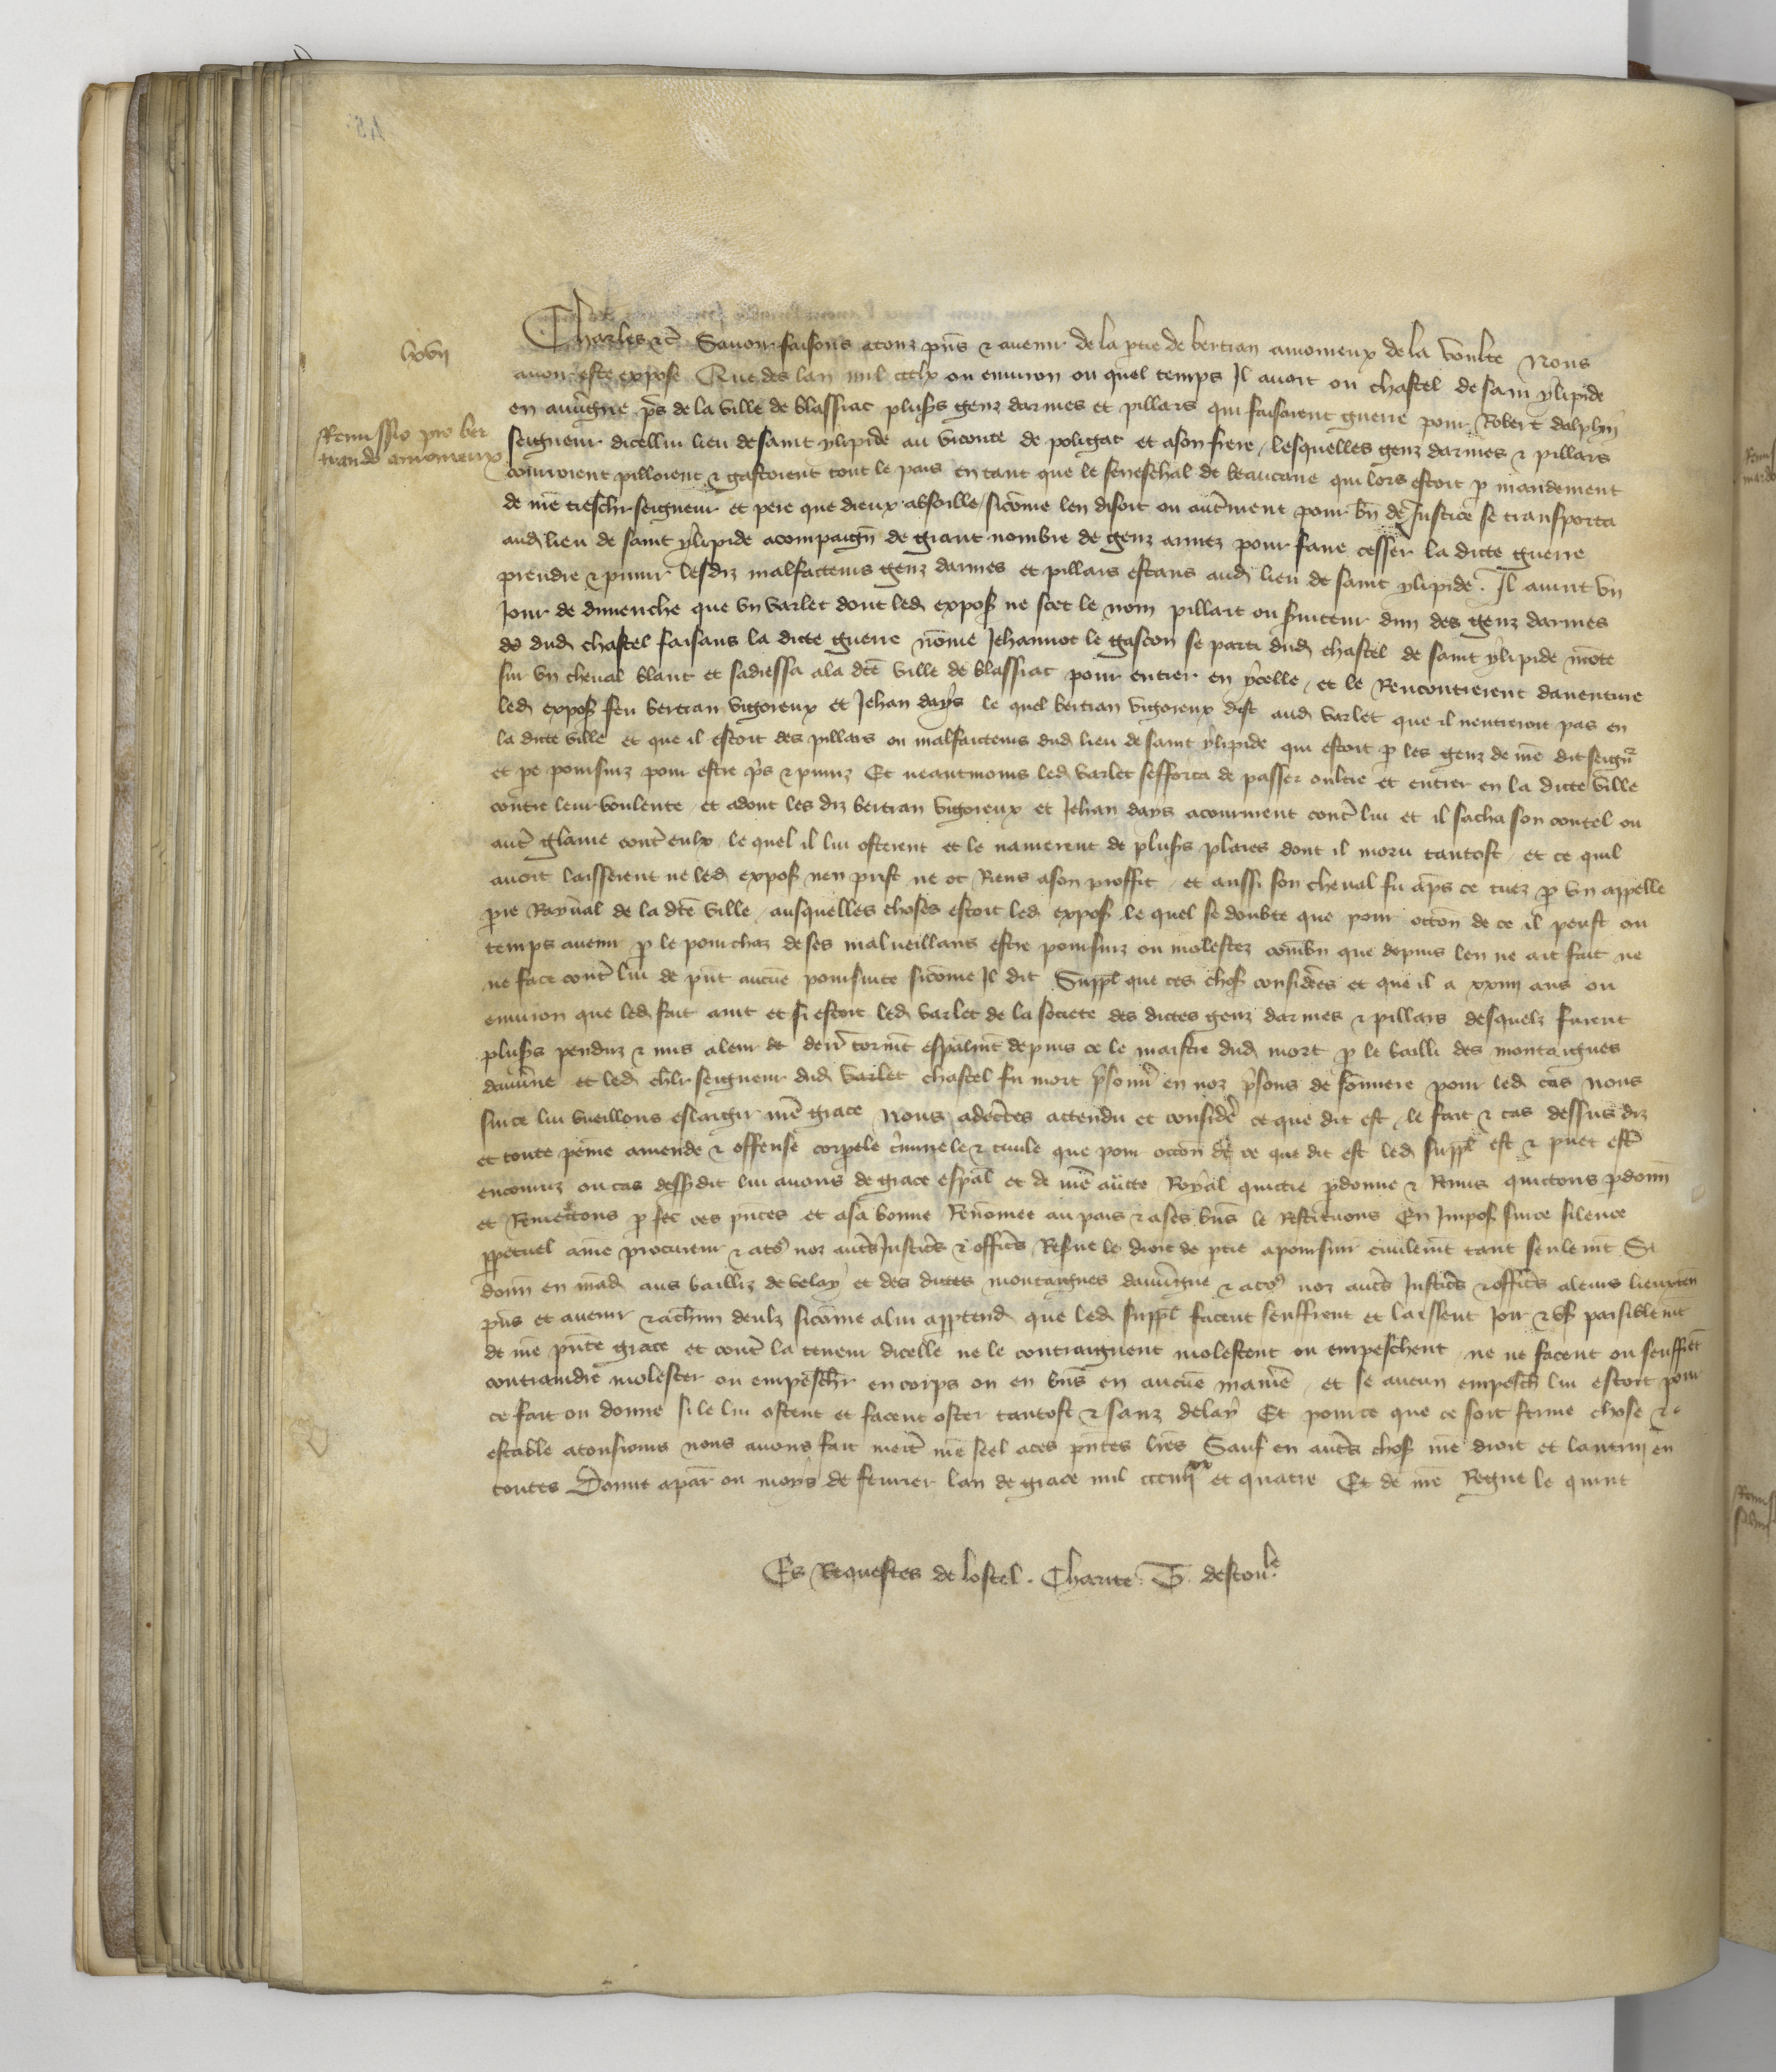 lxvii
Remissio pro ber
trando amoureux
Charles etc̃ Savoir faisons a touz pñs et avenir de la ptie de bertran amoureux de la voulte Nous
avoir este expose Que des lan mil ccclx ou environ ou quel temps Il avoit ou chastel de saint ylipide
en auũgne pr̃s de la ville de blassiac plusrs genz darmes et pillars qui faisoient guerre pour Robert dalphin
seigneur dicellui lieu de saint ylipide au viconte de polignac et a son frere / lesquelles genz darmes et pillars
couroient pilloient et gastoient tout le pais en tant que le seneschal de beaucaire qui lors estoit p mandement
de nr̃e treschr seigneur et pere que dieux absoille / sicõme len disoit ou autr̃ment pour bñ de Justice se transporta
aud lieu de saint ylipide acompaigñ de grant nombre de genz armez pour faire cesser la dicte guerre
prendre et punir lesdiz malfacteurs genz darmes et pillars estans aud lieu de saint ylipide . Il avint un
Jour de dimenche que un varlet dont led expos ne scet le nom pillart ou serviteur dun des genz darmes
de dud chastel faisans la dicte guerre nõme Jehannot le gascon se parti dud chastel de saint ylipide mõte
sur un cheval blanc et sadressa a la dcẽ ville de blassiac pour entrer en ycelle / et le Rencontrerent daventure
led expos feu bertran vigoreux et Jehan days le quel bertran vigoreux dist aud varlet que il nentreroit pas en
la dicte ville et que il estoit des pillars ou malfaicteurs dud lieu de saint ylipide qui estoit p les genz de nr̃e dit seignr̃
et pe poursuiz pour estre pr̃s et puniz Et neantmoins led varlet sefforca de passer oultre et entrer en la dicte ville
contre leur voulente / et adont les diz bertran vigoreux et Jehan days acoururent contr̃ lui et il sacha son coutel ou
autr̃ glaive contr̃ eulx / le quel il lui osterent et le navrerent de plusrs plaies dont il moru tantost / et ce quil
avoit laisserent ne led expos nen prist ne ot Riens a son proffit / et aussi son cheval fu apr̃s ce tuez p un appelle
pre Raynal de la dcẽ ville / ausquelles choses estoit led expos le quel se doubte que pour occõn de ce il peust ou
temps avenir p le pourchaz de ses malveillans estre poursuiz ou molestez combñ que depuis len ne ait fait ne
ne face contr̃ lui de pñt aucũe poursuite sicõme Il dit Suppl que ces chos considerees et que il a xxiiii ans ou
environ que led fait avit et si estoit led varlet de la societe des dictes genz darmes et pillars desquelz furent
plusrs penduz et mis a leur derr̃ tormt espalmt depuis ce le maistre dud mort p le bailli des montaignes
dauũne et led chlr seigneur dud varlet chastel fu mort prisonñ en noz prisons de sommiere pour led cas Nous
sur ce lui vueillons eslargir nr̃e grace Nous adecertes attendu et considere ce que dit est / le fait et cas dessus diz
et toute peine amende et offense corporele criminele et civile que pour occõn de ce que dit est led suppl est et puet estr̃
encouruz ou cas dessusdit lui avons de grace espal et de nr̃e aũcte Royal quictie pdonne et Remis quictons pdonñ
et Remettons p fec ces pñtes et a sa bonne Renõmee au pais et a ses bñs le Restituons En Impos sur ce silence
ppetuel a nr̃e procureur et a toꝰ noz autr̃s Justic̃s et offic̃s Resve le droit de ptie a poursuir civilemt tant seulemt Si
donñ en mãd aus bailliz de velay et des dictes montaignes dauũgne et a toꝰ noz autr̃s Justic̃s et offic̃s a leurs lieuxten
pñs et avenir et a chũn deulx sicõme a lui apptend que led suppl facent seuffrent et laissent Joir et us paisiblemt
de nr̃e pñte grace et contr̃ la teneur dicelle ne le contraignent molestent ou empeschent / ne ne facent ou seuffret
contraindre molester ou empeschr en corps ou en bñs en aucũe manie / et se aucun empesch lui estoit pour
ce fait ou donne si le lui ostent et facent oster tantost et sanz delay Et pour ce que ce soit ferme chose et e
estable a tousiours nous avons fait mettr̃ nr̃e seel a ces pñtes lr̃es Sauf en autr̃s chos nr̃e droit et lautruy en
toutes Donne a paris ou moys de fevrier lan de grace mil ccc iiijxx et quatre Et de nr̃e Regne le quint
Es Requestes de lostel . Charite . G. destoule